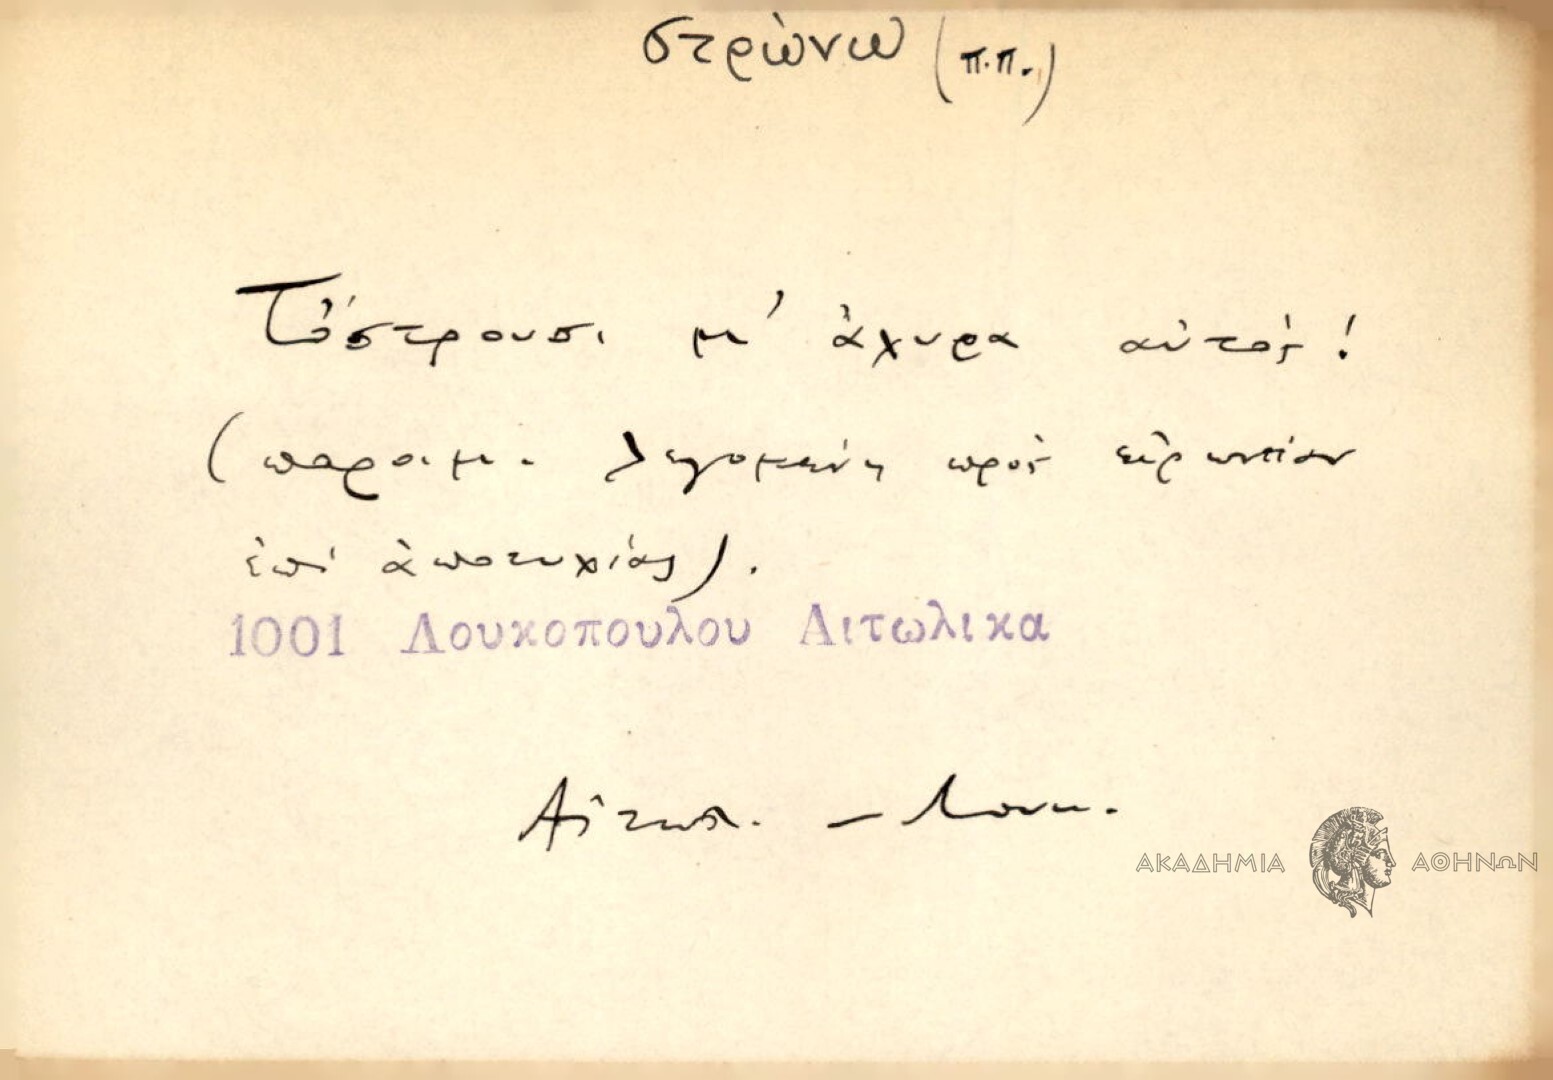 στρώνω (π.π.)
Τὄστρουσι μ' ἄχυρα αὐτός!
(παροιμ. λεγομένη πρὸς εἰρωνείαν
ἐπὶ ἀποτυχίας).
1001 Λουκοπουλου Αιτωλικα
Αἰτωλ. – Λουκ.
ΑΚΑΔΗΜΙΑ ΑΘΗΝΩΝ